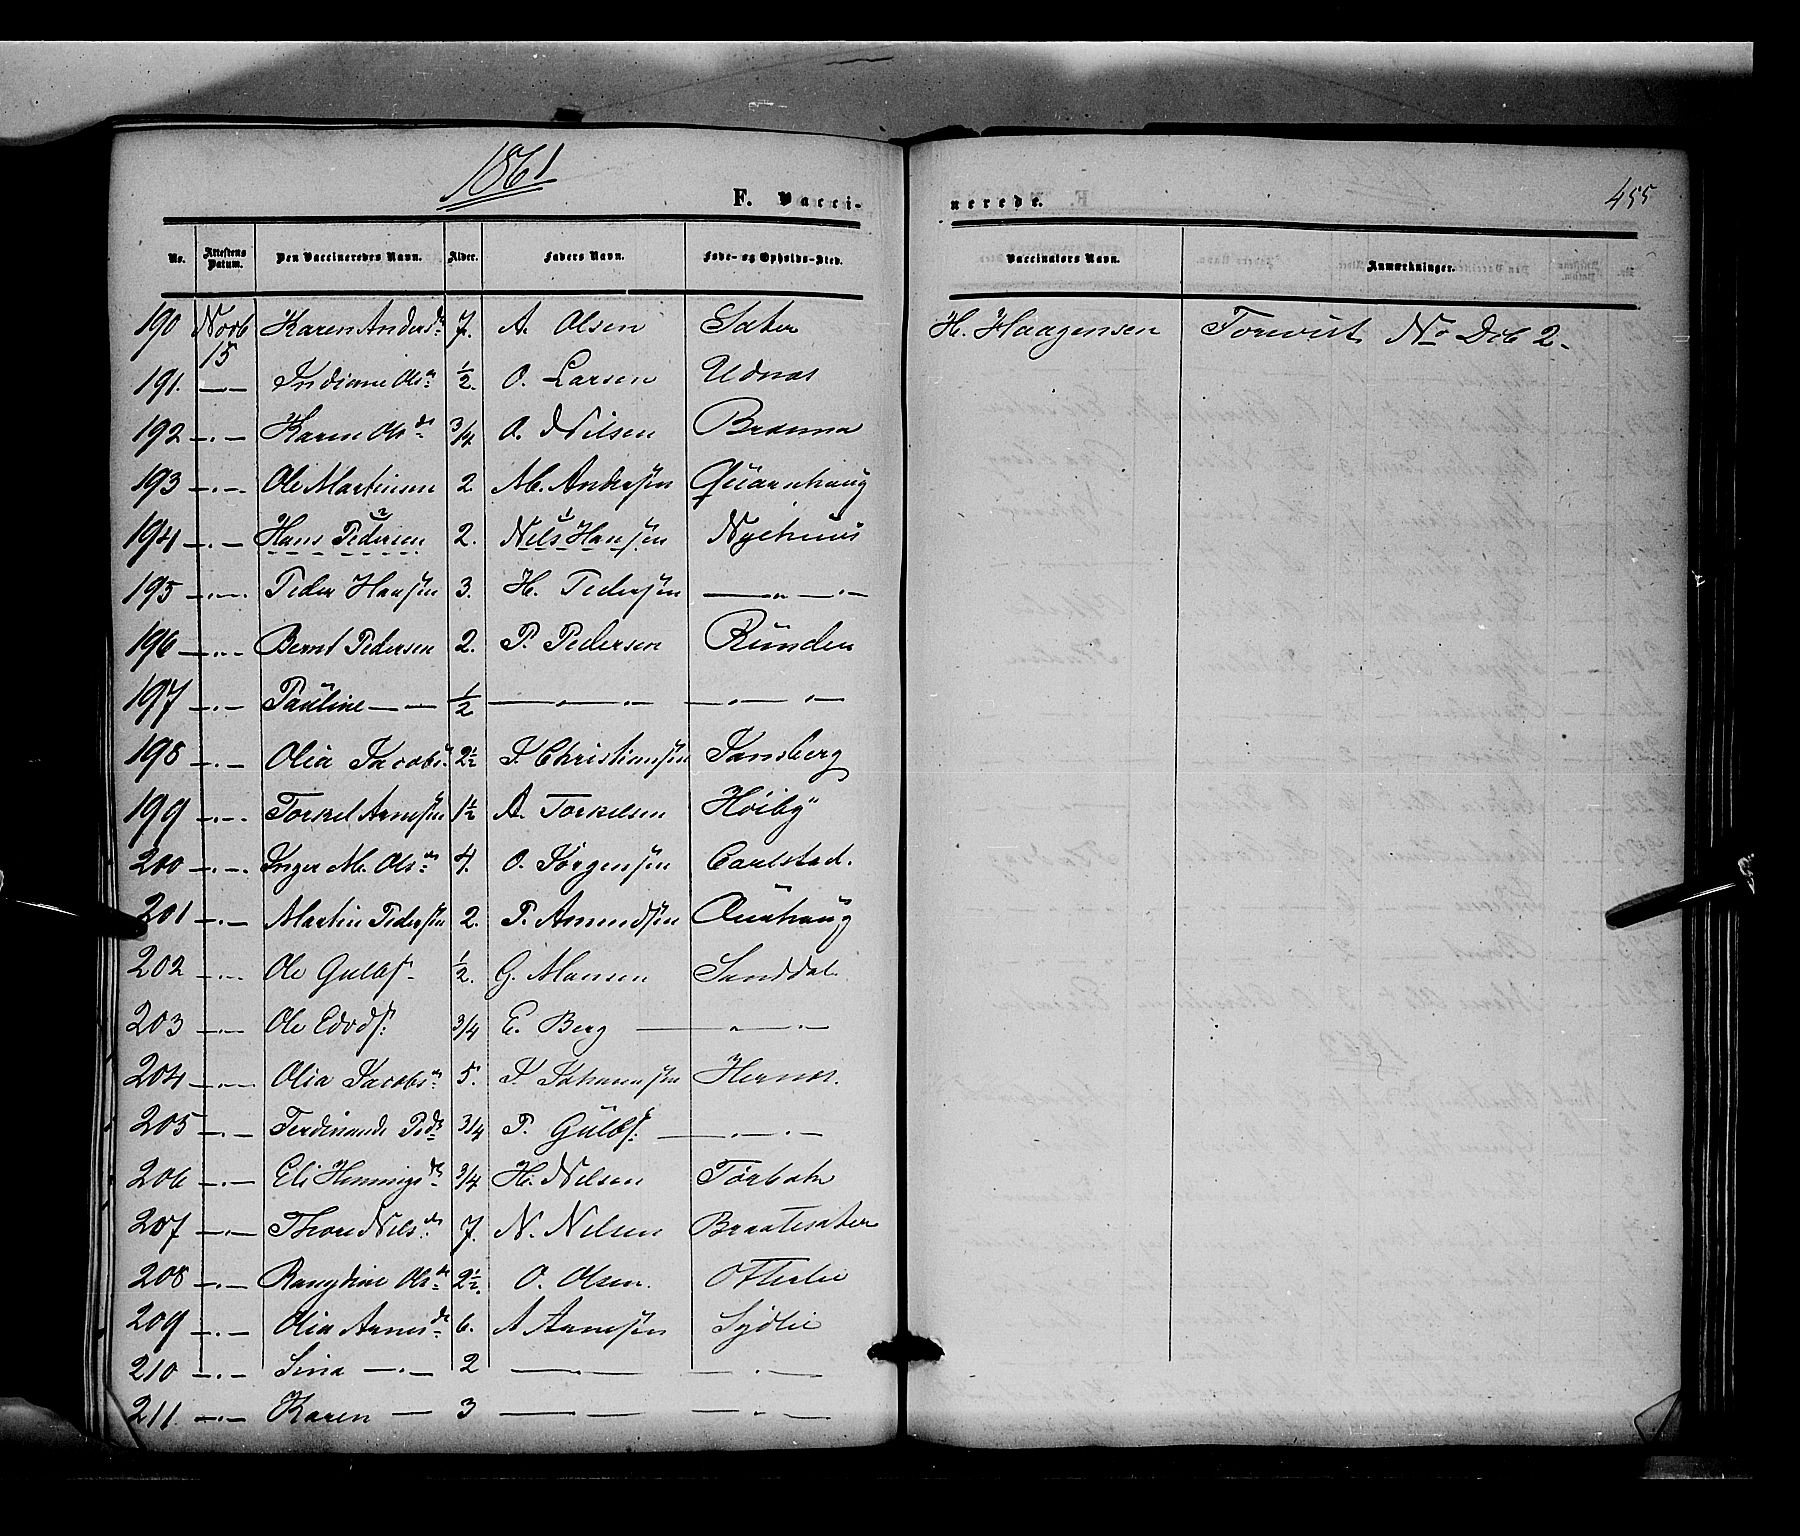 1861
F. Vacci-
nerede.
455
No. Attestens Datum. Den Vaccineredes Navn. Alder. Faders Navn. Føde- og Opholds-Sted. Vaccinators Navn. Anmærkninger.
190 Novb 15 Karen Andersd 7. A. Olsen Sæter H. Haagensen No Dcb 2.
191. — Indiane Olsd ½ O. Larsen Udnæs
192 -"- Karen Olsd 3/4 O. Nilsen Brænna
193 -"- Ole Martinsen 2. M. Andersen Quarnhaug
194 -"- Hans Pedersen 2. Nils Hansen Nyehuus
195 -"- Peder Hansen 3. H. Pedersen —"—"—
196 -"- Bernt Pedersen 2. P. Pedersen Runden
197 -"- Pauline — — ½ —"—"— —"—"—
198 -"- Olia Jacobsd 2½ J. Christiansen Sansberg
199 -"- Torkel Arnesen 1½ A. Torkelsen Høiby
200 -"- Inger M. Olsd 4. O. Jørgensen Carlstad.
201 -"- Martin Pedersen 2. P. Amundsen Quahaug
202 -"- Ole Gulbs. ½ G. Mansen Sanddal
203 -"- Ole Edvds. 3/4 E. Berg —"—"—
204 -"- Olia Jacobsd 5. J. Johannsen Hernes.
205 -"- Ferdinande Pedsd 3/4 P. Gulbs. —"—"—
206 -"- Eli Hemmingsd 3/4 H. Nelsen Torbæk
207 -"- Thore Nilsd. 7. N. Nelsen Braatesæter
208 -"- Rangdine Olsd 2½. O. Olsen. Otterlie
209 -"- Olia Arnesd 6. A Arnesen Sydlie
210 -"- Lina —"— 2 —"— —"—"—
211. -"- Karen — 3 —"— —"—"—